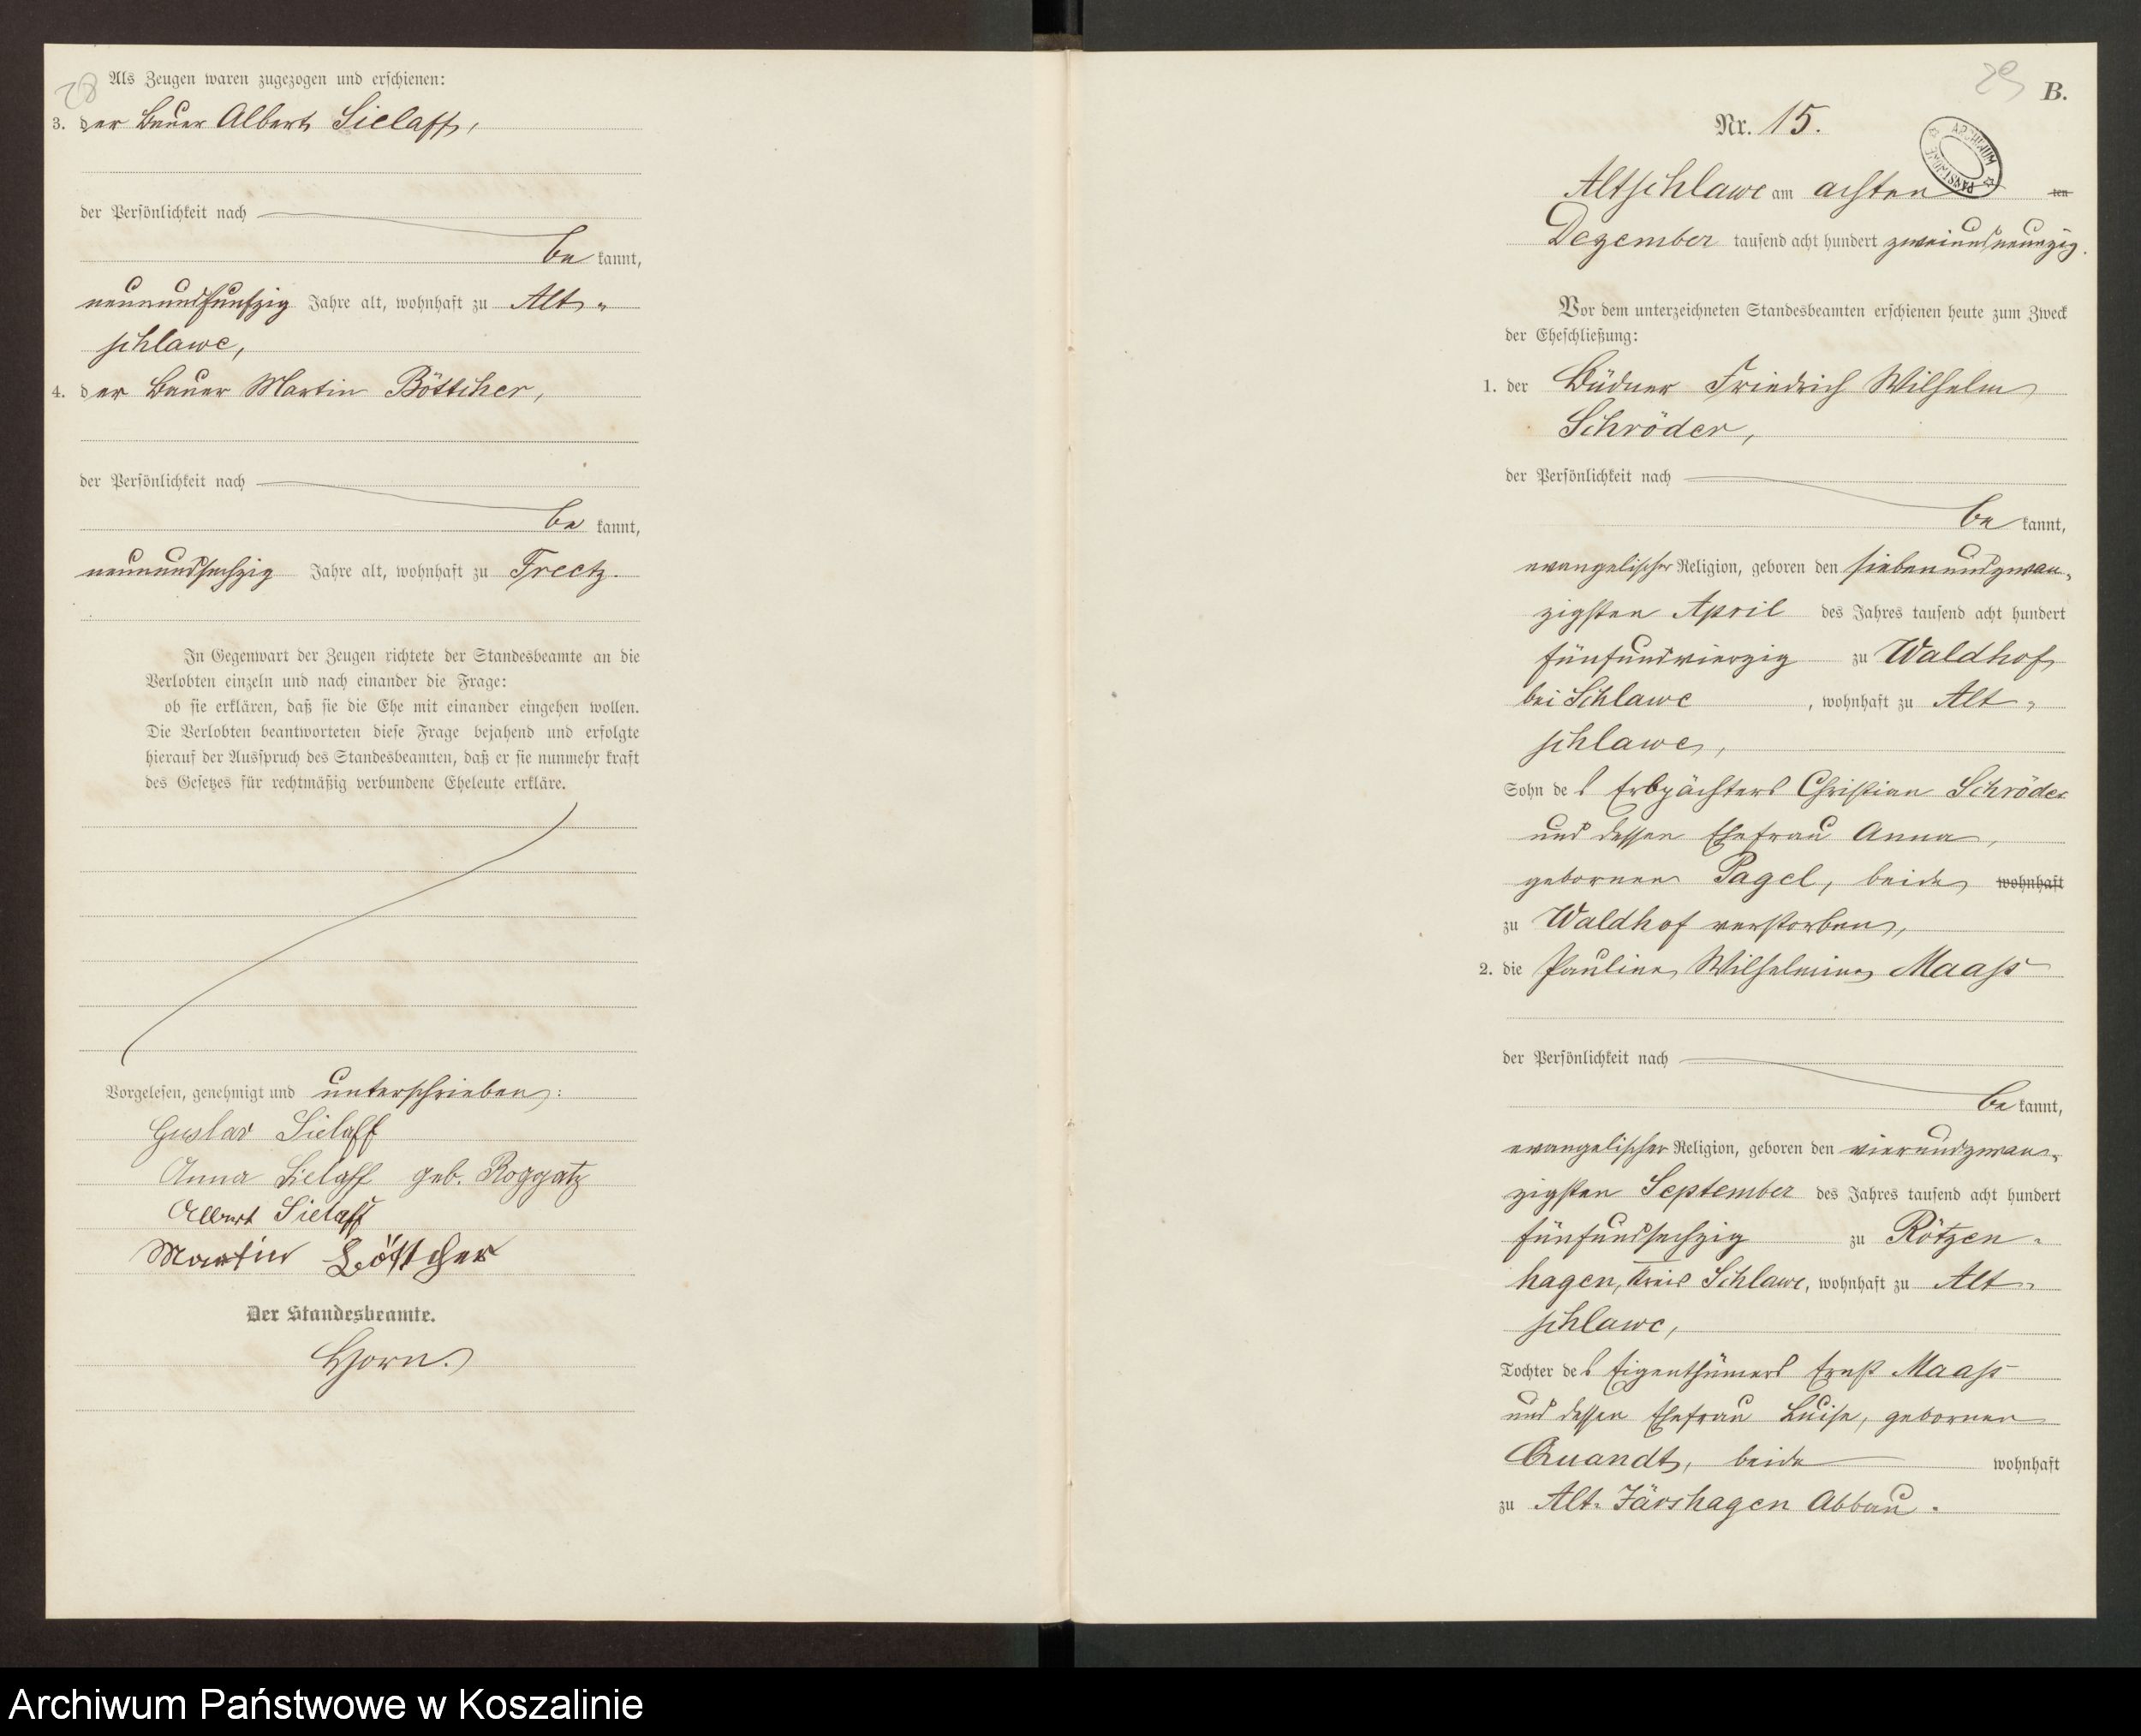 28
Als Zeugen waren zugezogen und erschienen:
3. der Bauer Albert Sielaff,
der Persönlichkeit nach
be kannt,
neunundfünfzig Jahre alt, wohnhaft zu Alt-
schlawe,
4. der Bauer Martin Böttcher,
der Persönlichkeit nach
be kannt,
neunundsechzig Jahre alt, wohnhaft zu Freetz.
In Gegenwart der Zeugen richtete der Standesbeamte an die
Verlobten einzeln und nach einander die Frage:
ob sie erklären, daß sie die Ehe mit einander eingehen wollen.
Die Verlobten beantworteten diese Frage bejahend und erfolgte
hierauf der Ausspruch des Standesbeamten, daß er sie nunmehr kraft
des Gesetzes für rechtmäßig verbundene Eheleute erkläre.
Vorgelesen, genehmigt und unterschrieben:
Gustav Sielaff
Anna Sielaff geb. Roggatz
Albert Sielaff
Martin Böttcher
Der Standesbeamte.
Horn.
29
B.
Nr. 15.
ARCHIWUM PAŃSTWOWE
Altschlawe am achten ten
Dezember tausend acht hundert zweiundneunzig.
Vor dem unterzeichneten Standesbeamten erschienen heute zum Zweck
der Eheschließung:
1. der Büdner Friedrich Wilhelm
Schröder,
der Persönlichkeit nach
be kannt,
evangelischer Religion, geboren den siebenundzwan-
zigsten April des Jahres tausend acht hundert
fünfundvierzig zu Waldhof
bei Schlawe, wohnhaft zu Alt-
schlawe,
Sohn des Erbpächters Christian Schröder
und dessen Ehefrau Anna,
gebornen Pagel, beide wohnhaft
zu Waldhof verstorben,
2. die Pauline Wilhelmine Maaß
der Persönlichkeit nach
be kannt,
evangelischer Religion, geboren den vierundzwan-
zigsten September des Jahres tausend acht hundert
fünfundsechzig zu Rötzen-
hagen, Kreis Schlawe, wohnhaft zu Alt-
schlawe,
Tochter des Eigenthümers Ernst Maaß
und dessen Ehefrau Luise, gebornen
Quandt, beide wohnhaft
zu Alt-Järshagen Abbau.
Archiwum Państwowe w Koszalinie